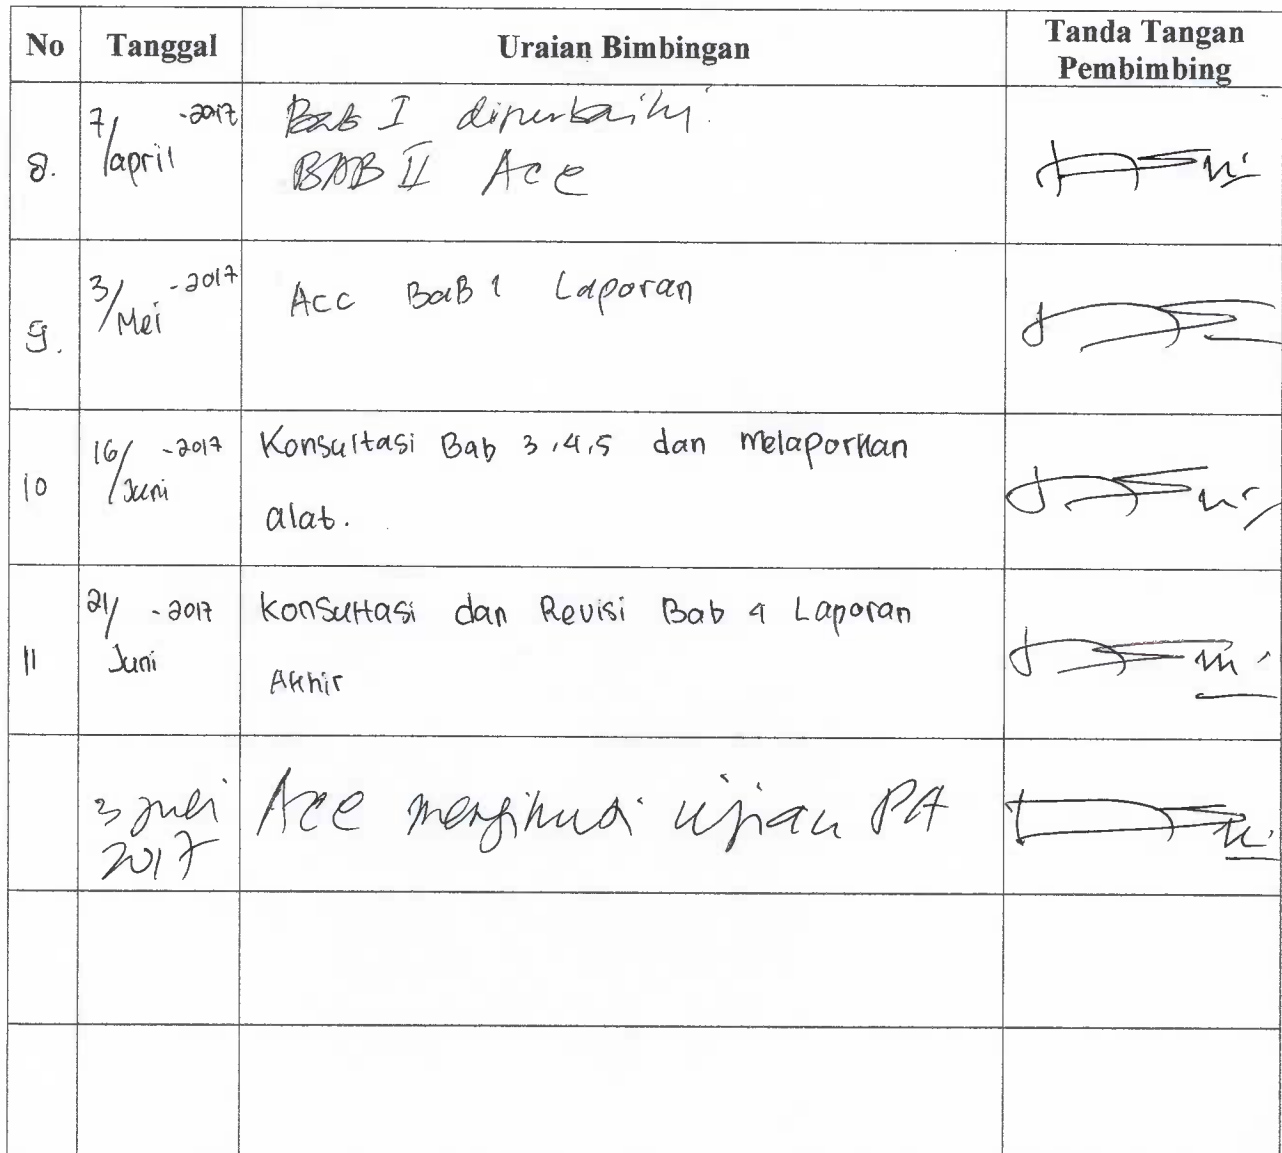 No Tanggal Uraian Bimbingan Tanda Tangan Pembimbing
8. 7/april -2017 Bab I diperbaiki.
BAB II Acc
9. 3/Mei -2017 Acc BaB 1 Laporan
10 16/Juni -2017 Konsultasi Bab 3,4,5 dan Melaporkan
alat.
11 21/Juni -2017 Konsultasi dan Revisi Bab 4 Laporan
Akhir
3 Juli 2017 Acc mengikuti ujian PA